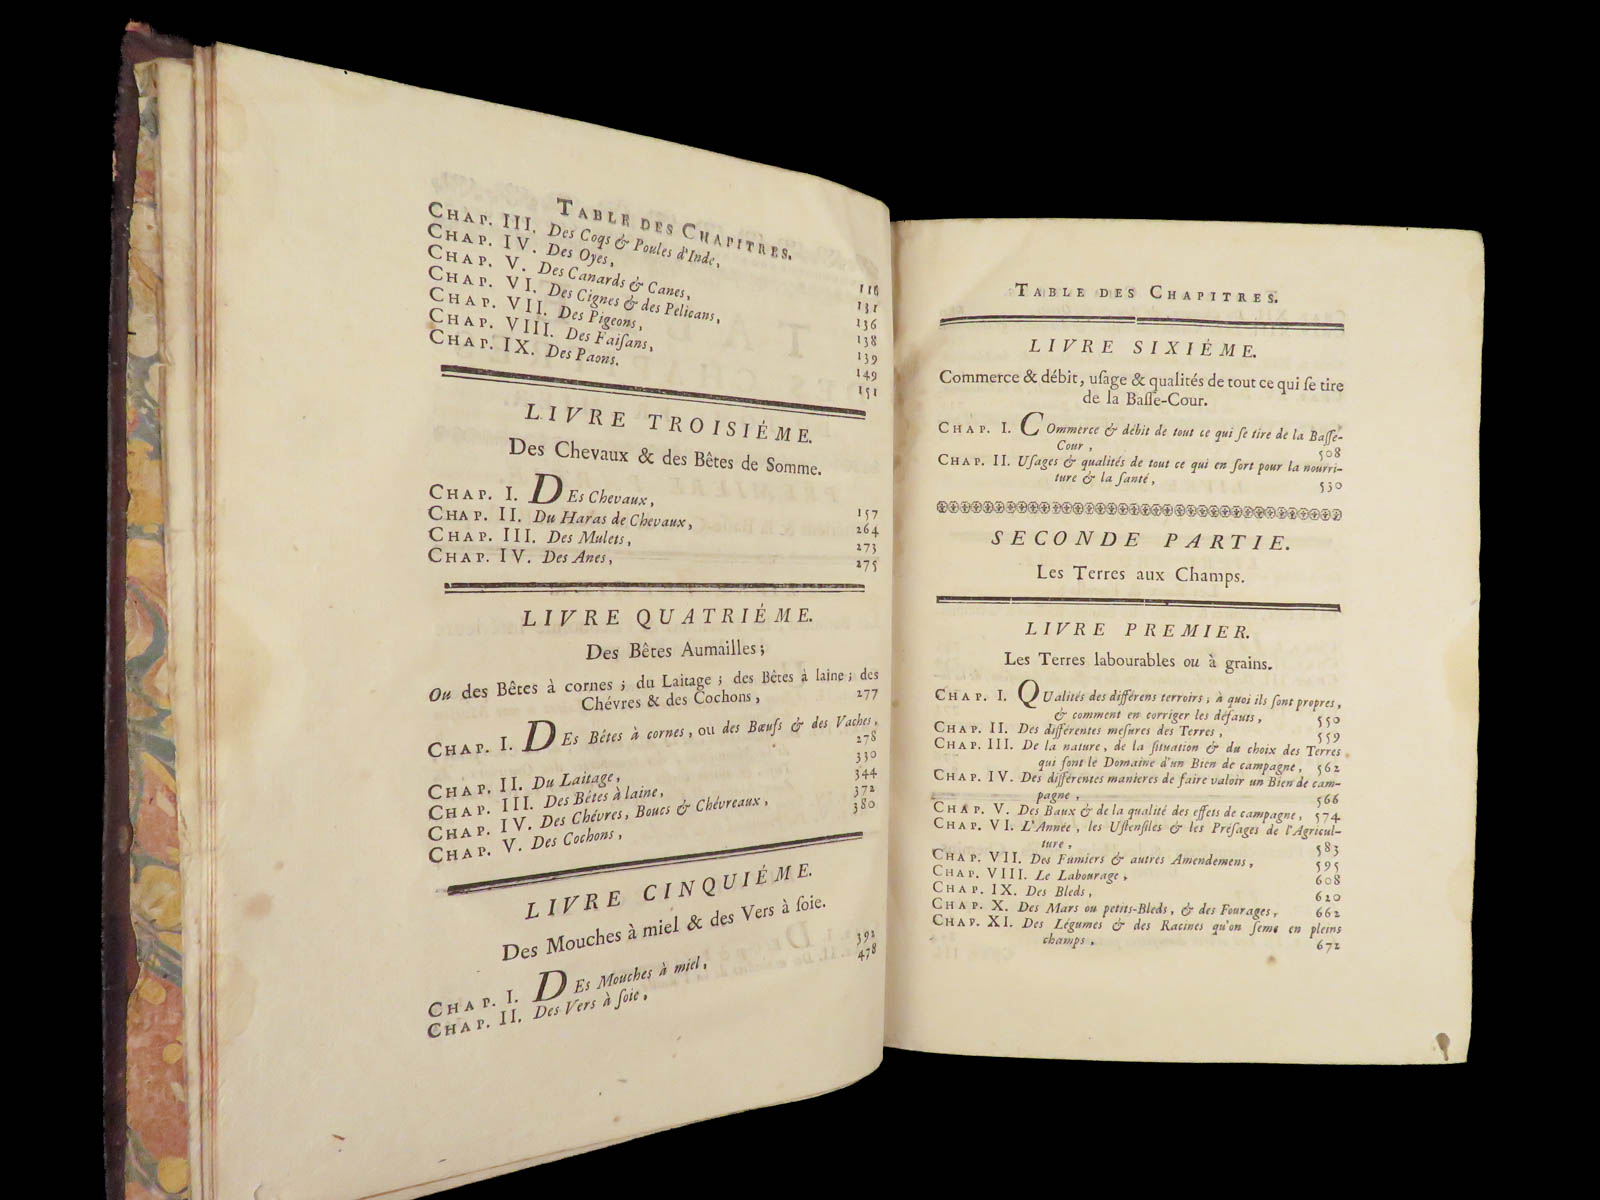 TABLE DES CHAPITRES.
CHAP. III. Des Coqs & Poules d'Inde, 116
CHAP. IV. Des Oyes, 131
CHAP. V. Des Canards & Canes, 136
CHAP. VI. Des Cignes & des Pelicans, 138
CHAP. VII. Des Pigeons, 139
CHAP. VIII. Des Faiſans, 149
CHAP. IX. Des Paons. 151
LIVRE TROISIÉME.
Des Chevaux & des Bêtes de Somme.
CHAP. I. DEs Chevaux, 157
CHAP. II. Du Haras de Chevaux, 264
CHAP. III. Des Mulets, 273
CHAP. IV. Des Anes, 275
LIVRE QUATRIÉME.
Des Bêtes Aumailles;
Ou des Bêtes à cornes; du Laitage; des Bêtes à laine; des
Chévres & des Cochons, 277
CHAP. I. DEs Bêtes à cornes, ou des Bœufs & des Vaches,
278
CHAP. II. Du Laitage, 330
CHAP. III. Des Bêtes à laine, 344
CHAP. IV. Des Chévres, Boucs & Chévreaux, 372
CHAP. V. Des Cochons, 380
LIVRE CINQUIÉME.
Des Mouches à miel & des Vers à ſoie.
CHAP. I. DEs Mouches à miel, 392
CHAP. II. Des Vers à ſoie, 478
TABLE DES CHAPITRES.
LIVRE SIXIÉME.
Commerce & débit, uſage & qualités de tout ce qui ſe tire
de la Baſſe-Cour.
CHAP. I. COmmerce & débit de tout ce qui ſe tire de la Baſſe-
Cour, 508
CHAP. II. Uſages & qualités de tout ce qui en ſort pour la nourri-
ture & la ſanté, 530
SECONDE PARTIE.
Les Terres aux Champs.
LIVRE PREMIER.
Les Terres labourables ou à grains.
CHAP. I. QUalités des différens terroirs; à quoi ils ſont propres,
& comment en corriger les défauts, 550
CHAP. II. Des différentes meſures des Terres, 559
CHAP. III. De la nature, de la ſituation & du choix des Terres
qui ſont le Domaine d'un Bien de campagne, 562
CHAP. IV. Des différentes manieres de faire valoir un Bien de cam-
pagne, 566
CHAP. V. Des Baux & de la qualité des effets de campagne, 574
CHAP. VI. L'Année, les Uſtenſiles & les Préſages de l'Agricul-
ture, 583
CHAP. VII. Des Fumiers & autres Amendemens, 595
CHAP. VIII. Le Labourage, 608
CHAP. IX. Des Bleds, 620
CHAP. X. Des Mars ou petits-Bleds, & des Fourages, 662
CHAP. XI. Des Légumes & des Racines qu'on ſeme en pleins
champs, 672